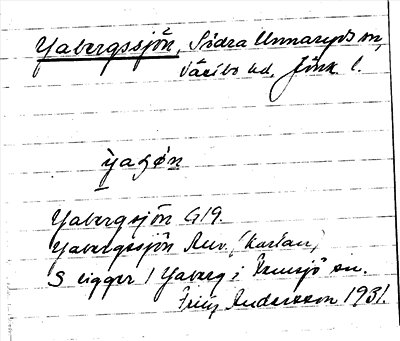 Yabergssjön, Södra Unnaryds sn,
Västbo hd, Jönk. l.
Yabergsjön G19.
Yabergssjön Anv. (Kartan)
S ligger i Yaberg i Femsjö sn.
Fritz Andersson 1931.